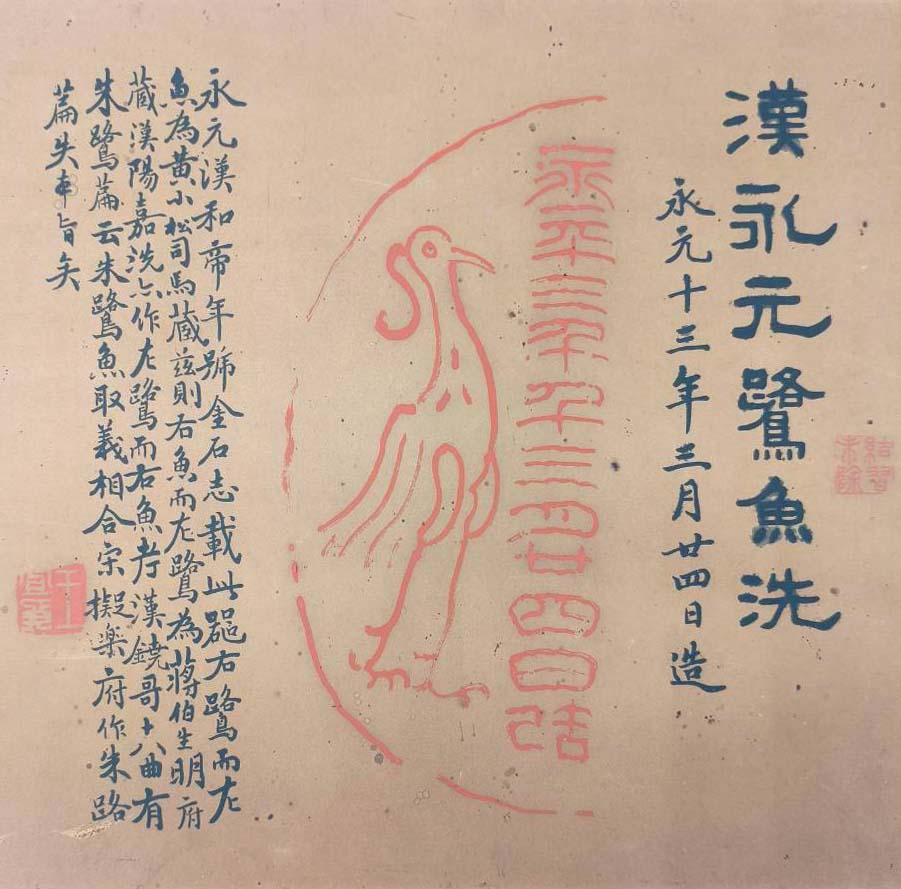 漢永元鷺魚洗
永元十三年三月廿四日造
結習未除
永元十三年三月廿四日造
永元漢和帝年號金石志載此噐右鷺而左
魚為黃小松司馬藏茲則右魚而左鷺為蔣伯生明府
藏漢陽嘉洗亦作左鷺而右魚考漢鐃哥十八曲有
朱鷺篇云朱鷺魚取義相合宋擬樂府作朱路
篇失本旨矣